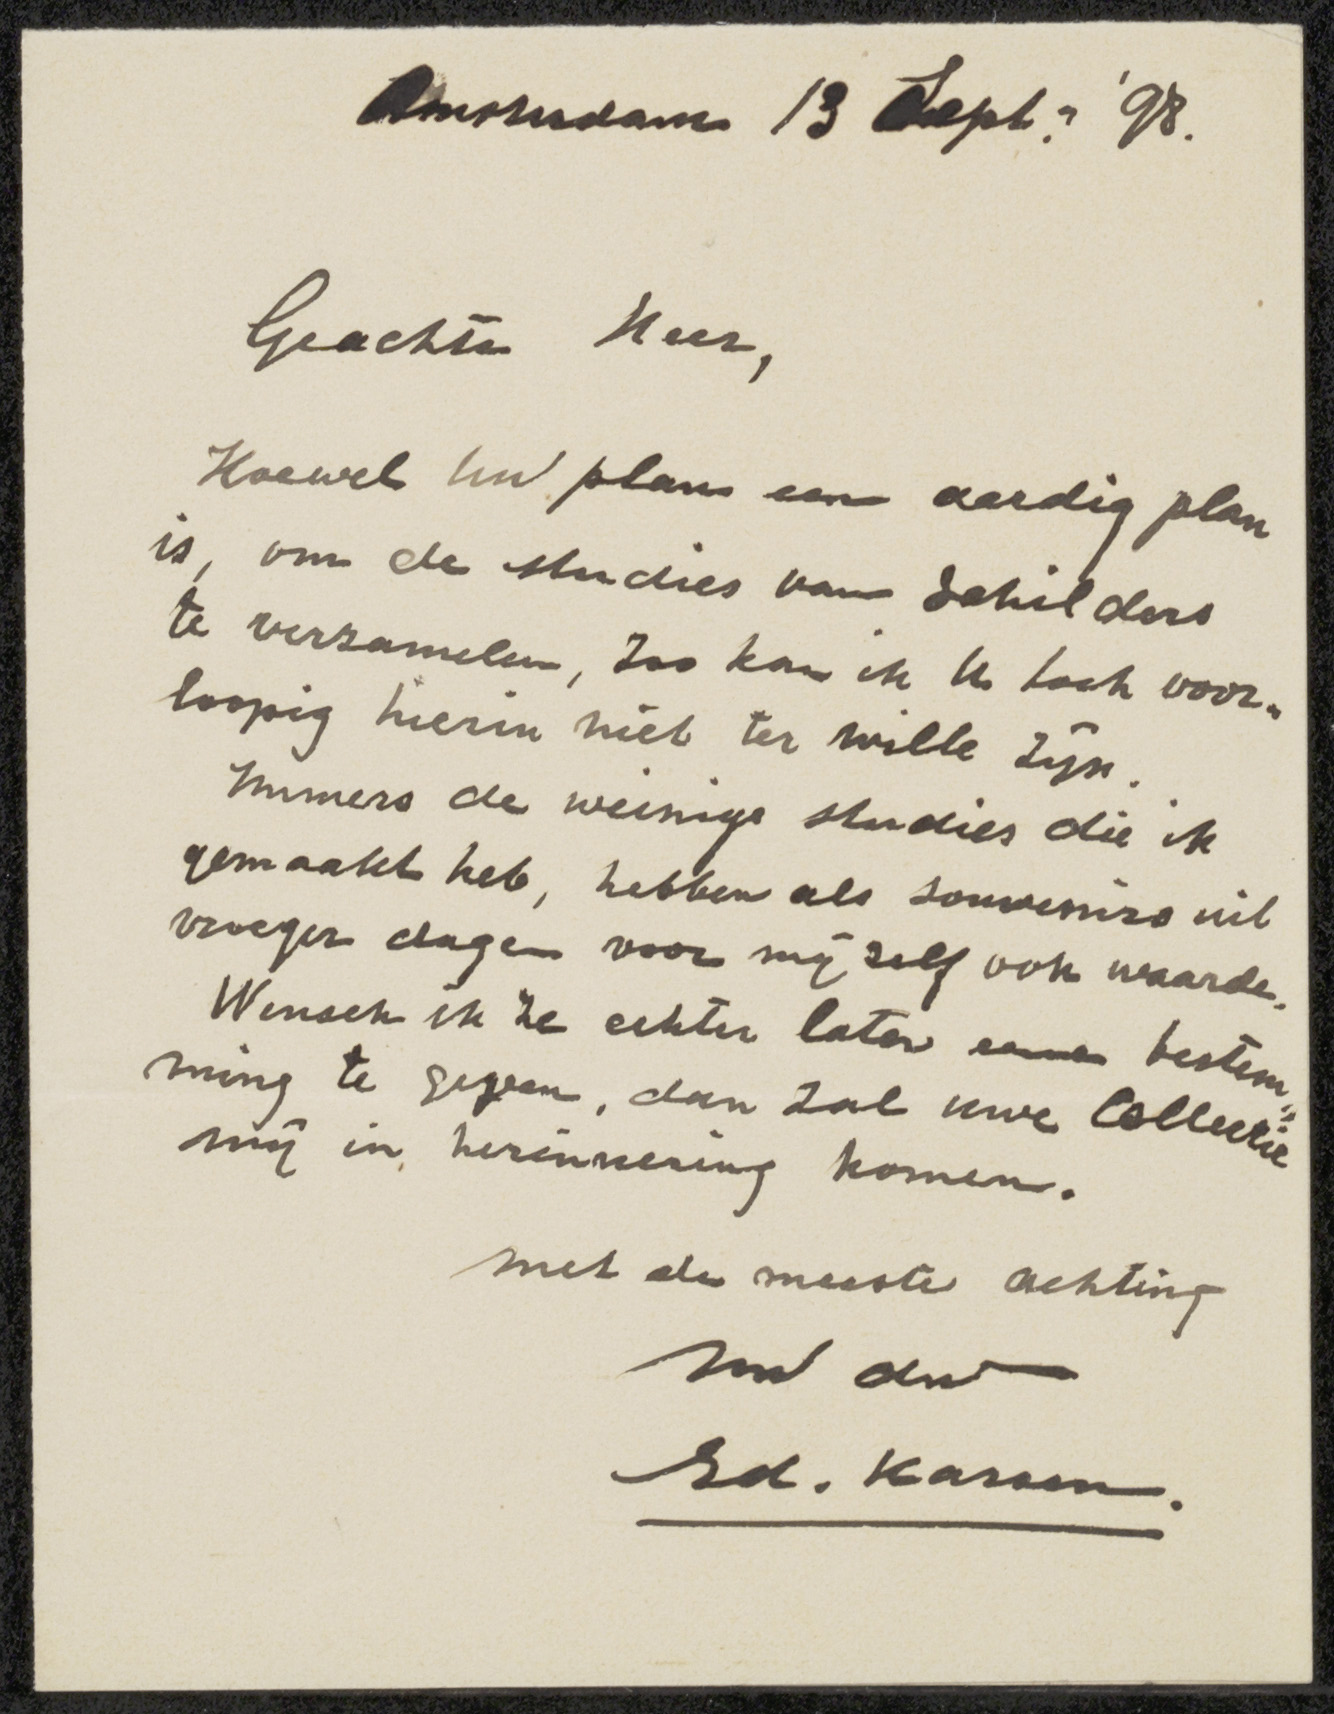 Amsterdam 13 Sept: '98.
Geachte Heer,
Hoewel Uw plan een aardig plan
is, om de studies van Schilders
te verzamelen, zoo kan ik U toch voor-
loopig hierin niet ter wille zijn.
Immers de weinige studies die ik
gemaakt heb, hebben als souvenirs uit
vroeger dagen voor mij zelf ook waarde.
Wensch ik ze echter later eene bestem-
ming te geven, dan zal uwe Collectie
mij in herinnering komen.
met de meeste achting
Uw dw
Ed. Karsen.